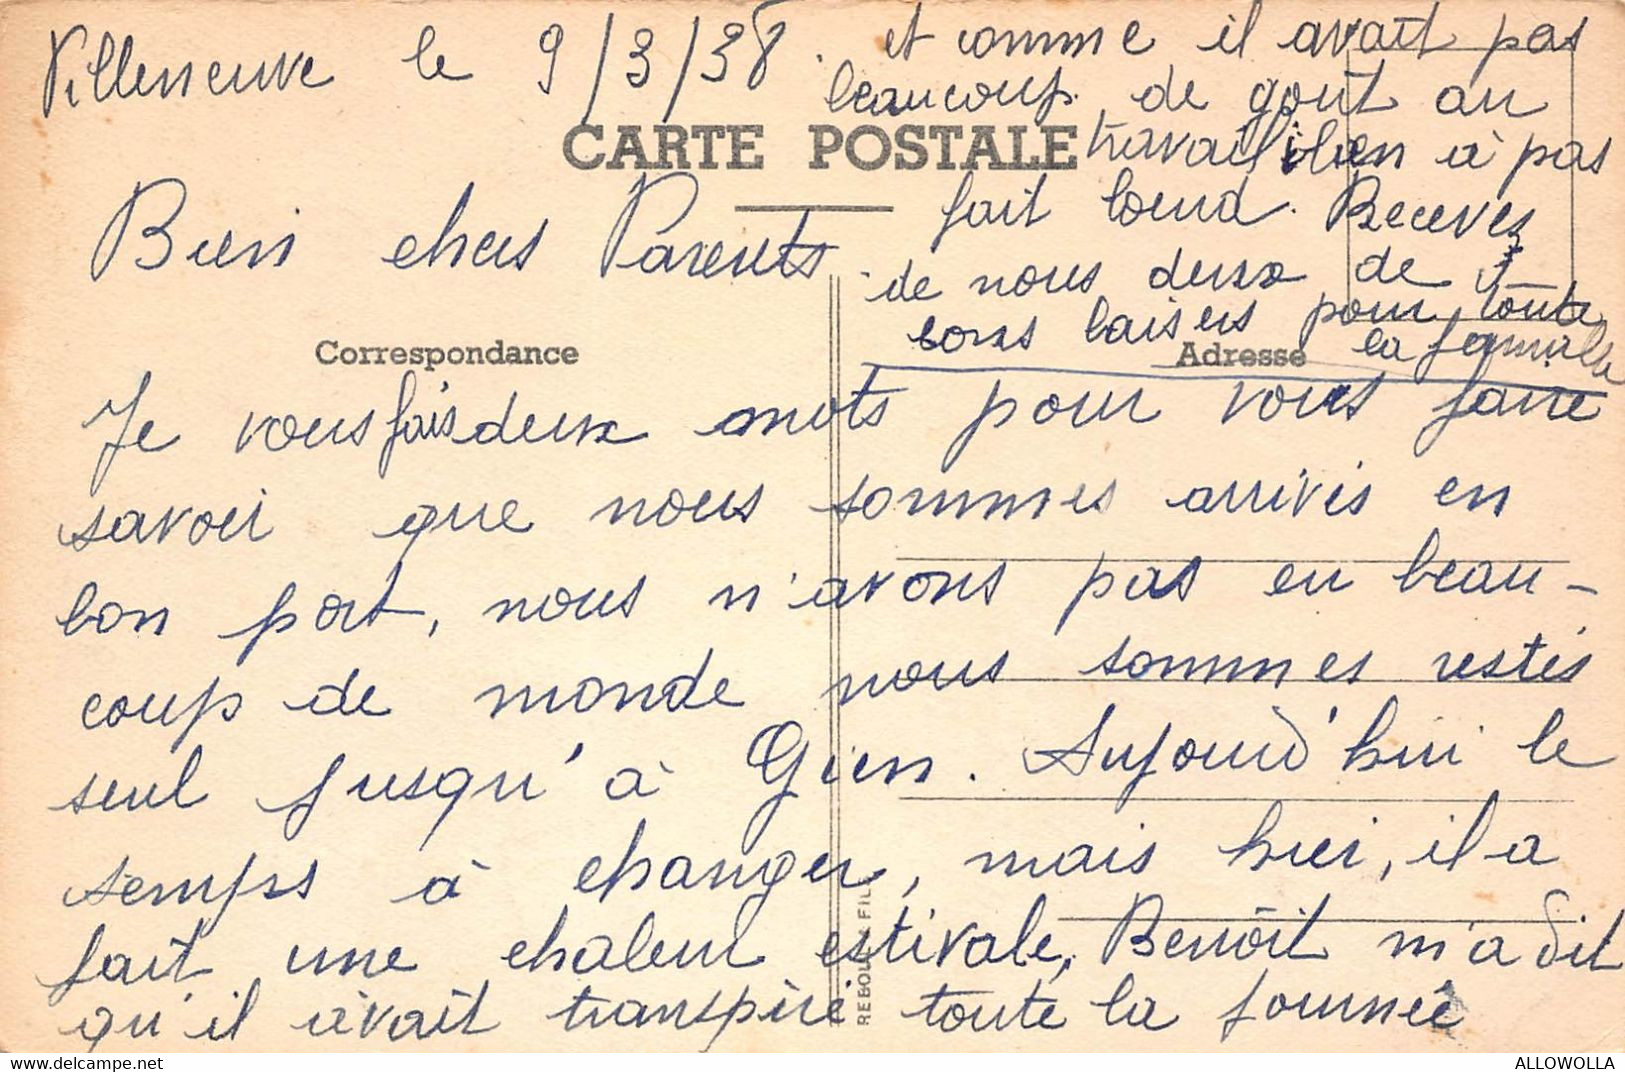 Villeneuve le 9/3/38.
CARTE POSTALE
Bien chers Parents
Correspondance
Adresse
Je vous fais deux mots pour vous faire
savoir que nous sommes arrivés en
bon port, nous n'avons pas eu beau-
coup de monde nous sommes restés
seul jusqu'à Gien. Aujourd'hui le
temps à changer, mais hier, il a
fait une chaleur estivale, Benoît m'a dit
qu'il avait transpiré toute la journée
et comme il avait pas
beaucoup de goût au
travail bien à pas
fait lourd. Recevez
de nous deux de
bons baisers pour toute
la famille
REBOUL FILS
ALLOWOLLA